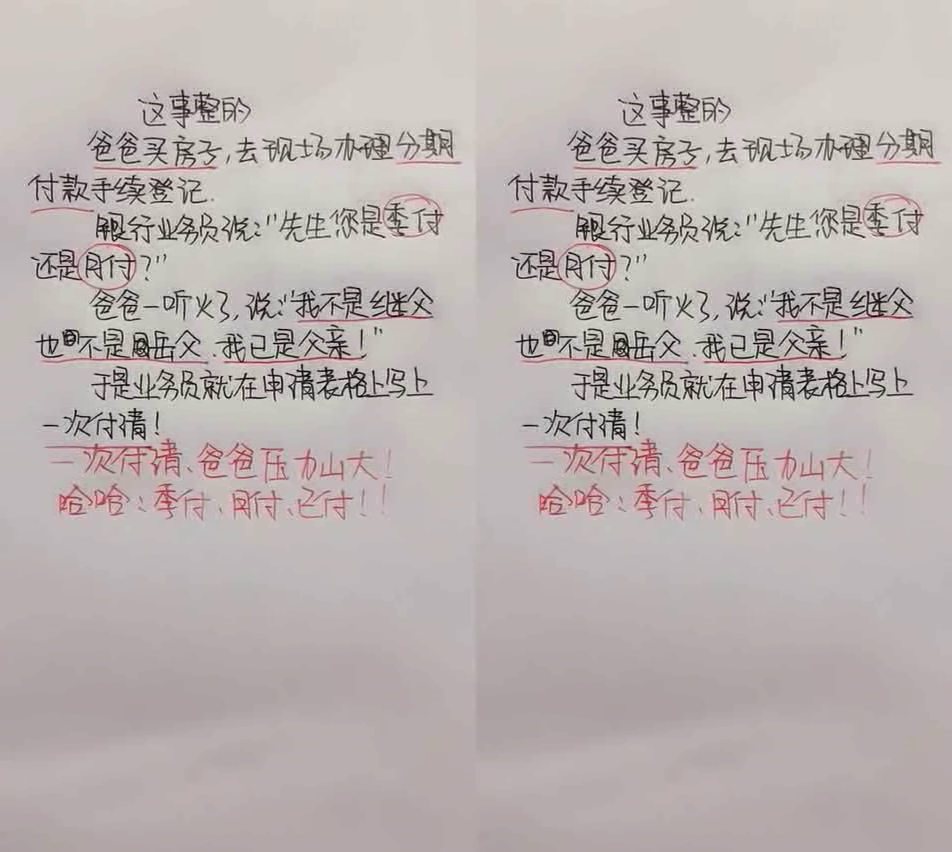 这事整的
爸爸买房子,去现场办理分期
付款手续登记.
银行业务员说:"先生您是季付
还是月付?"
爸爸一听火了,说:"我不是继父
也不是岳父.我已是父亲!"
于是业务员就在申请表格上写上
一次付清!
一次付清、爸爸压力山大!
哈哈:季付、月付、已付!!
这事整的
爸爸买房子,去现场办理分期
付款手续登记.
银行业务员说:"先生您是季付
还是月付?"
爸爸一听火了,说:"我不是继父
也不是岳父.我已是父亲!"
于是业务员就在申请表格上写上
一次付清!
一次付清、爸爸压力山大!
哈哈:季付、月付、已付!!